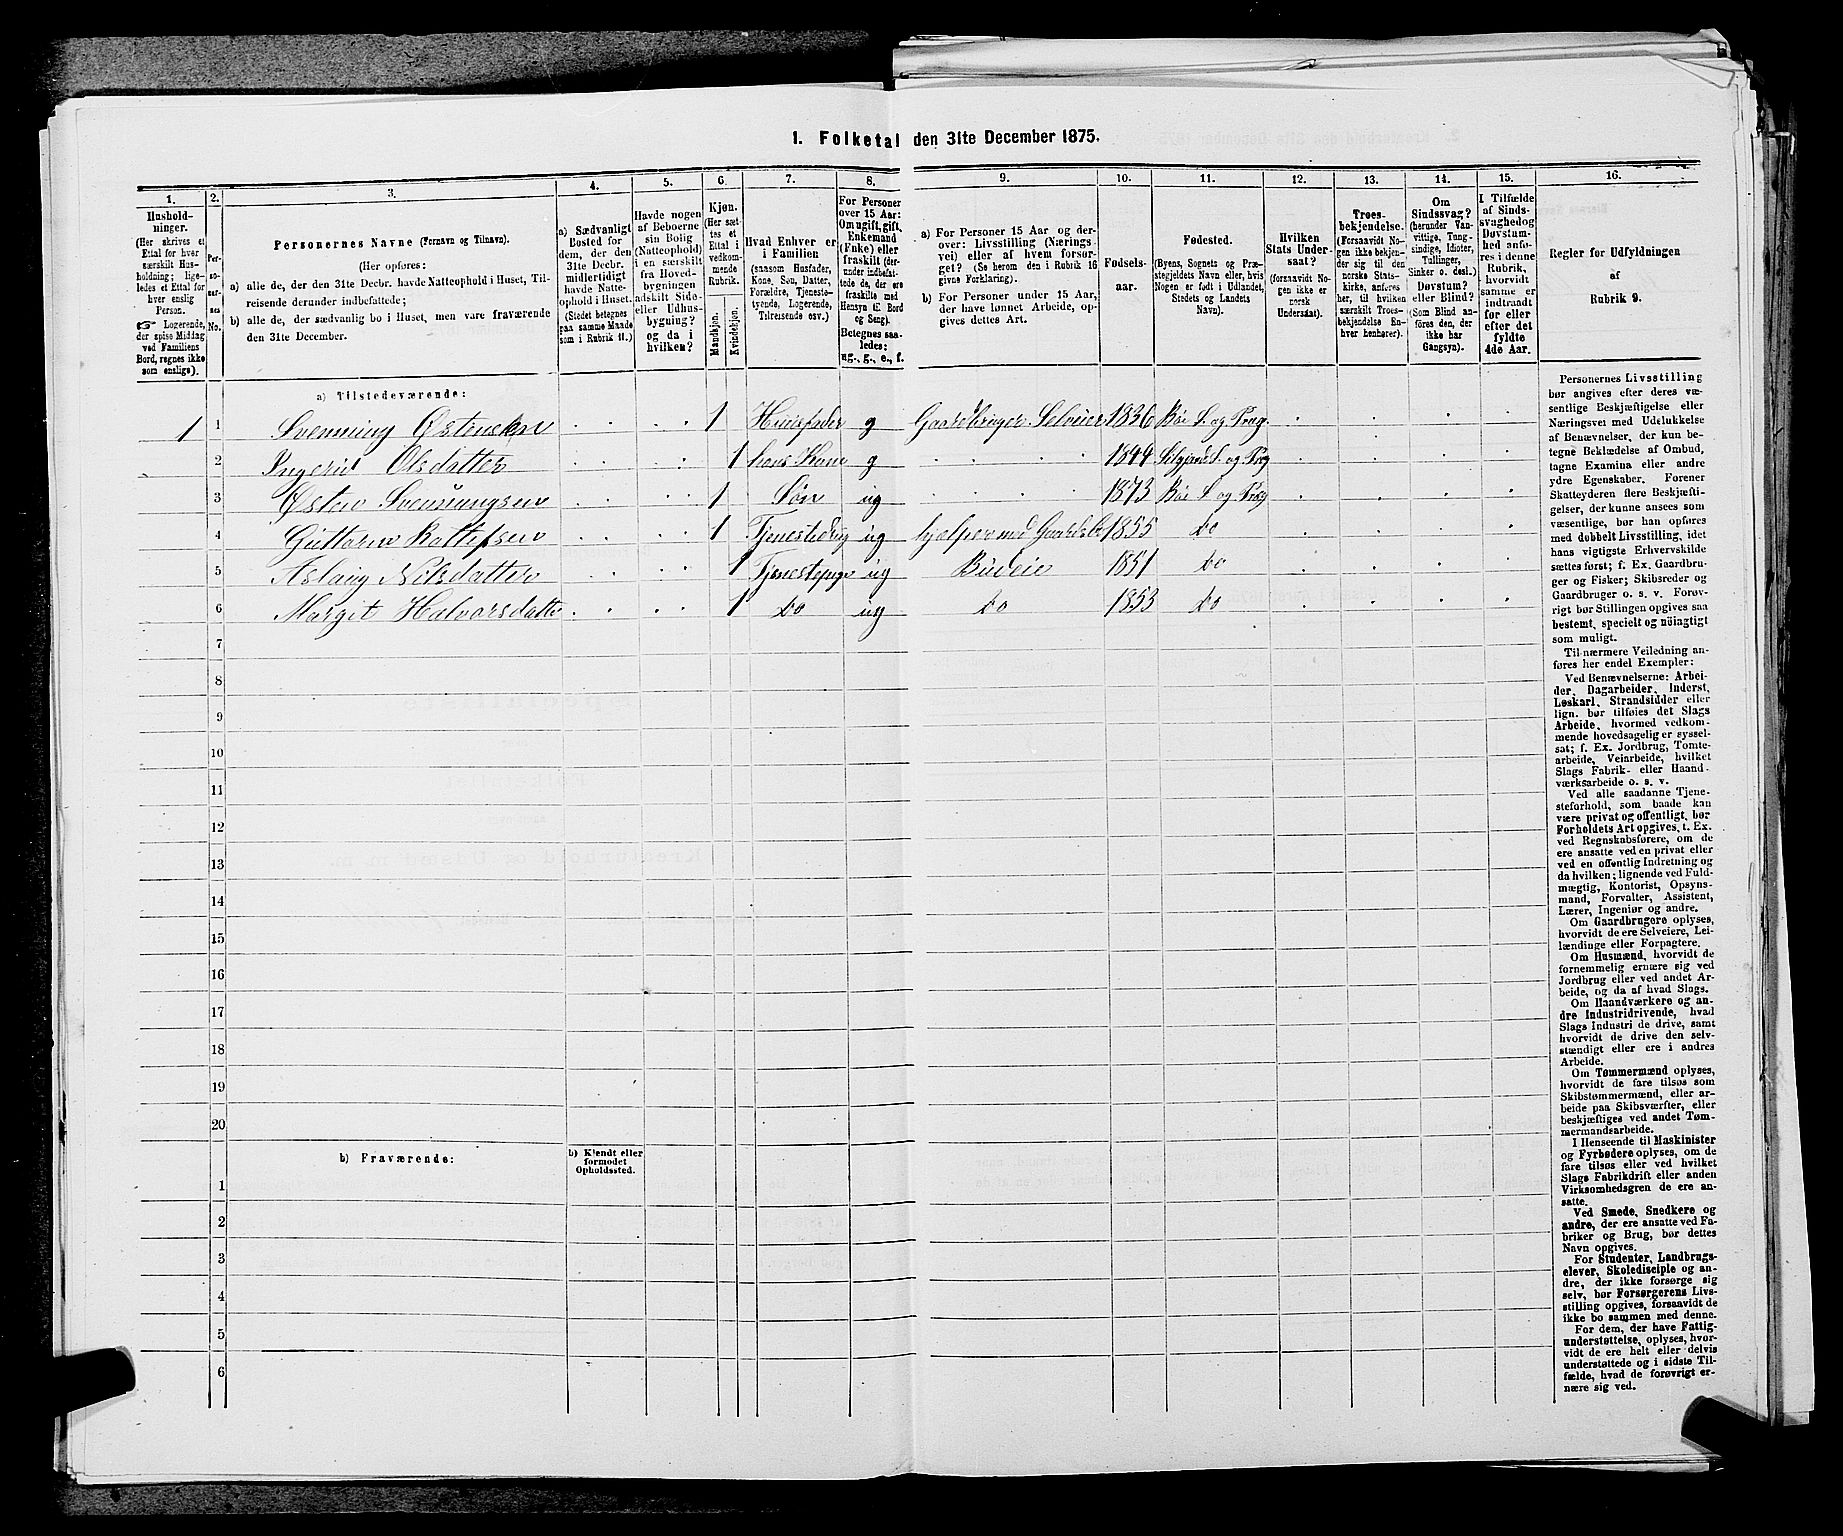 1. Folketal den 31te December 1875.
1. 2. 3. 4. 5. 6. 7. 8. 9. 10. 11. 12. 13. 14. 15. 16.
Hushold-
ninger.
(Her skrives et
Ettal for hver
særskilt Hus-
holdning; lige-
ledes et Ettal for
hver enslig
Person.
☞ Logerende,
der spise Middag
ved Familiens
Bord, regnes ikke
som enslige).
Per-
so-
ner-
nes
No.
Personernes Navne (Fornavn og Tilnavn).
(Her opføres:
a) alle de, der den 31te Decbr. havde Natteophold i Huset, Til-
reisende derunder indbefattede;
b) alle de, der sædvanlig bo i Huset, men vare fraværende
den 31te December.
a) Sædvanligt
Bosted for
dem, der den
31te Decbr.
midlertidigt
havde Natte-
ophold i Huset.
(Stedet betegnes
paa samme Maade
som i Rubrik 11.)
Havde nogen
af Beboerne
sin Bolig
(Natteophold)
i en særskilt
fra Hoved-
bygningen
adskilt Side-
eller Udhus-
bygning?
og da i
hvilken?
Kjøn.
(Her sæt-
tes et
Ettal i
vedkom-
mende
Rubrik.
Mandkjøn.
Kvindekjøn.
Hvad Enhver er
i Familien
(saasom Husfader,
Kone, Søn, Datter,
Forældre, Tjeneste-
tyende, Logerende,
Tilreisende osv.)
For Personer
over 15 Aar:
Om ugift, gift,
Enkemand
(Enke) eller
fraskilt (der-
under indbefat-
tede de, der ere
fraskilte med
Hensyn til Bord
og Seng).
Betegnes saa-
ledes:
ug., g., e., f.
a) For Personer 15 Aar og der-
over: Livsstilling (Nærings-
vei) eller af hvem forsør-
get? (Se herom den i Rubrik 16
givne Forklaring).
b) For Personer under 15 Aar,
der have lønnet Arbeide, op-
gives dettes Art.
Fødsels-
aar.
Fødested.
(Byens, Sognets og Præ-
stegjeldets Navn eller, hvis
Nogen er født i Udlandet,
Stedets og Landets
Navn).
Hvilken
Stats Under-
saat?
(forsaavidt No-
gen ikke er
norsk
Undersaat).
Troes-
bekjendelse.
(Forsaavidt No-
gen ikke bekjen-
der sig til den
norske Stats-
kirke, anføres
her, til hvilken
særskilt Troes-
bekjendelse En-
hver henhører).
Om
Sindssvag?
(herunder Van-
vittige, Tung-
sindige, Idioter,
Tullinger,
Sinker o. desl.)
Døvstum?
eller Blind?
(Som Blind an-
føres den, der
ikke har
Gangsyn).
I Tilfælde
af Sinds-
svaghed og
Døvstum-
hed anfø-
res i denne
Rubrik,
hvorvidt
samme er
indtraadt
før eller
efter det
fyldte
4de Aar.
Regler for Udfyldningen
af
Rubrik 9.
a) Tilstedeværende:
1 1 Svenning Østensen 1 Huusfader g Gaardbruger Selveier 1836 Bøi S. og Præg.
2 Ingerid Olsdatter 1 hans Kone g 1844 Silgjord S. og Præg
3 Østen Svenningsen 1 Søn ug 1873 Bøi S. og Præg
4 Guttorm Rollefsen 1 Tjenestedreng ug hjelper med Gaardsbr 1855 do
5 Aslaug Nilsdatter 1 Tjenestepige ug Budeie 1851 do
6 Margit Halvorsdatte 1 do ug do 1853 do
7
8
9
10
11
12
13
14
15
16
17
18
19
20
b) Fraværende:
b) Kjendt eller
formodet
Opholdssted.
1
2
3
4
5
6
Personernes Livsstilling
bør angives efter deres væ-
sentlige Beskjæftigelse eller
Næringsvei med Udelukkelse
af Benævnelser, der kun be-
tegne Beklædelse af Ombud,
tagne Examina eller andre
ydre Egenskaber. Forener
Skatteyderen flere Beskjæfti-
gelser, der kunne ansees som
væsentlige, bør han opføres
med dobbelt Livsstilling, idet
hans vigtigste Erhvervskilde
sættes først; f. Ex. Gaardbru-
ger og Fisker; Skibsreder og
Gaardbruger o. s. v. Forøv-
rigt bør Stillingen opgives saa
bestemt, specielt og nöiagtigt
som muligt.
Til nærmere Veiledning an-
føres her endel Exempler:
Ved Benævnelserne: Arbei-
der, Dagarbeider, Inderst,
Løskarl, Strandsidder eller
lign. bør tilføies det Slags
Arbeide, hvormed vedkom-
mende hovedsagelig er syssel-
sat; f. Ex. Jordbrug, Tomte-
arbeide, Veiarbeide, hvilket
Slags Fabrik- eller Haand-
værksarbeide o. s. v.
Ved alle saadanne Tjene-
steforhold, som baade kan
være privat og offentligt, bør
Forholdets Art opgives, t. Ex.
ved Regnskabsførere, om de
ere ansatte ved en privat eller
ved en offentlig Indretning og
da hvilken; lignende ved Fuld-
mægtig, Kontorist, Opsyns-
mand, Forvalter, Assistent,
Lærer, Ingeniør og andre.
Om Gaardbrugere oplyses,
hvorvidt de ere Selveiere, Lei-
lændinge eller Forpagtere.
Om Husmænd, hvorvidt de
fornemmelig ernære sig ved
Jordbrug eller ved andet Ar-
beide, og da af hvad Slags.
Om Haandværkere og an-
dre Industridrivende, hvad
Slags Industri de drive, samt
hvorvidt de drive den selv-
stændigt eller ere i andres
Arbeide.
Om Tømmermænd oplyses,
hvorvidt de fare tilsøs som
Skibstømmermænd, eller ar-
beide paa Skibsværfter, eller
beskjæftiges ved andet Tøm-
mermandsarbeide.
I Henseende til Maskinister
og Fyrbødere oplyses, om de
fare tilsøs eller ved hvilket
Slags Fabrikdrift eller anden
Virksomhedsgren de ere an-
satte.
Ved Smede, Snedkere og
andre, der ere ansatte ved Fa-
briker og Brug, bør dettes
Navn opgives.
For Studenter, Landbrugs-
elever, Skoledisciple og an-
dre, der ikke forsørge sig
selv, bør Forsørgerens Livs-
stilling opgives, forsaavidt de
ikke bo sammen med denne.
For dem, der have Fattig-
understøttelse, oplyses, hvor-
vidt de ere helt eller delvis
understøttede og i sidste Til-
fælde, hvad de forøvrigt er-
nære sig ved.